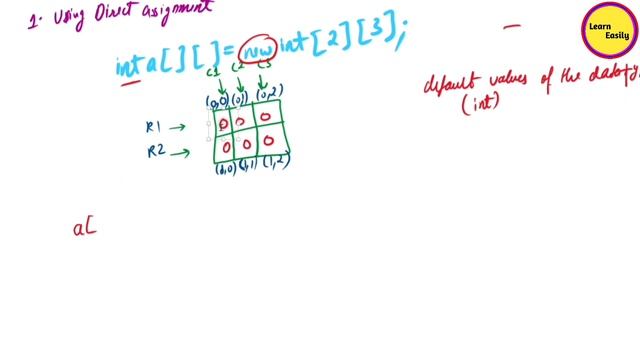 1. Using Direct assignment
Learn
Easily
int a[][] = new int[2][3];
C1 C2 C3
default values of the data
(int)
(0,0) (0,1) (0,2)
R1 → 0 0 0
R2 → 0 0 0
(1,0) (1,1) (1,2)
a[